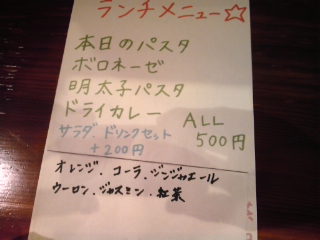 ランチメニュー☆
本日のパスタ
ボロネーゼ
明太子パスタ
ドライカレー
ALL
500円
サラダ、ドリンクセット
+200円
オレンジ、コーラ、ジンジャエール
ウーロン、ジャスミン、紅茶